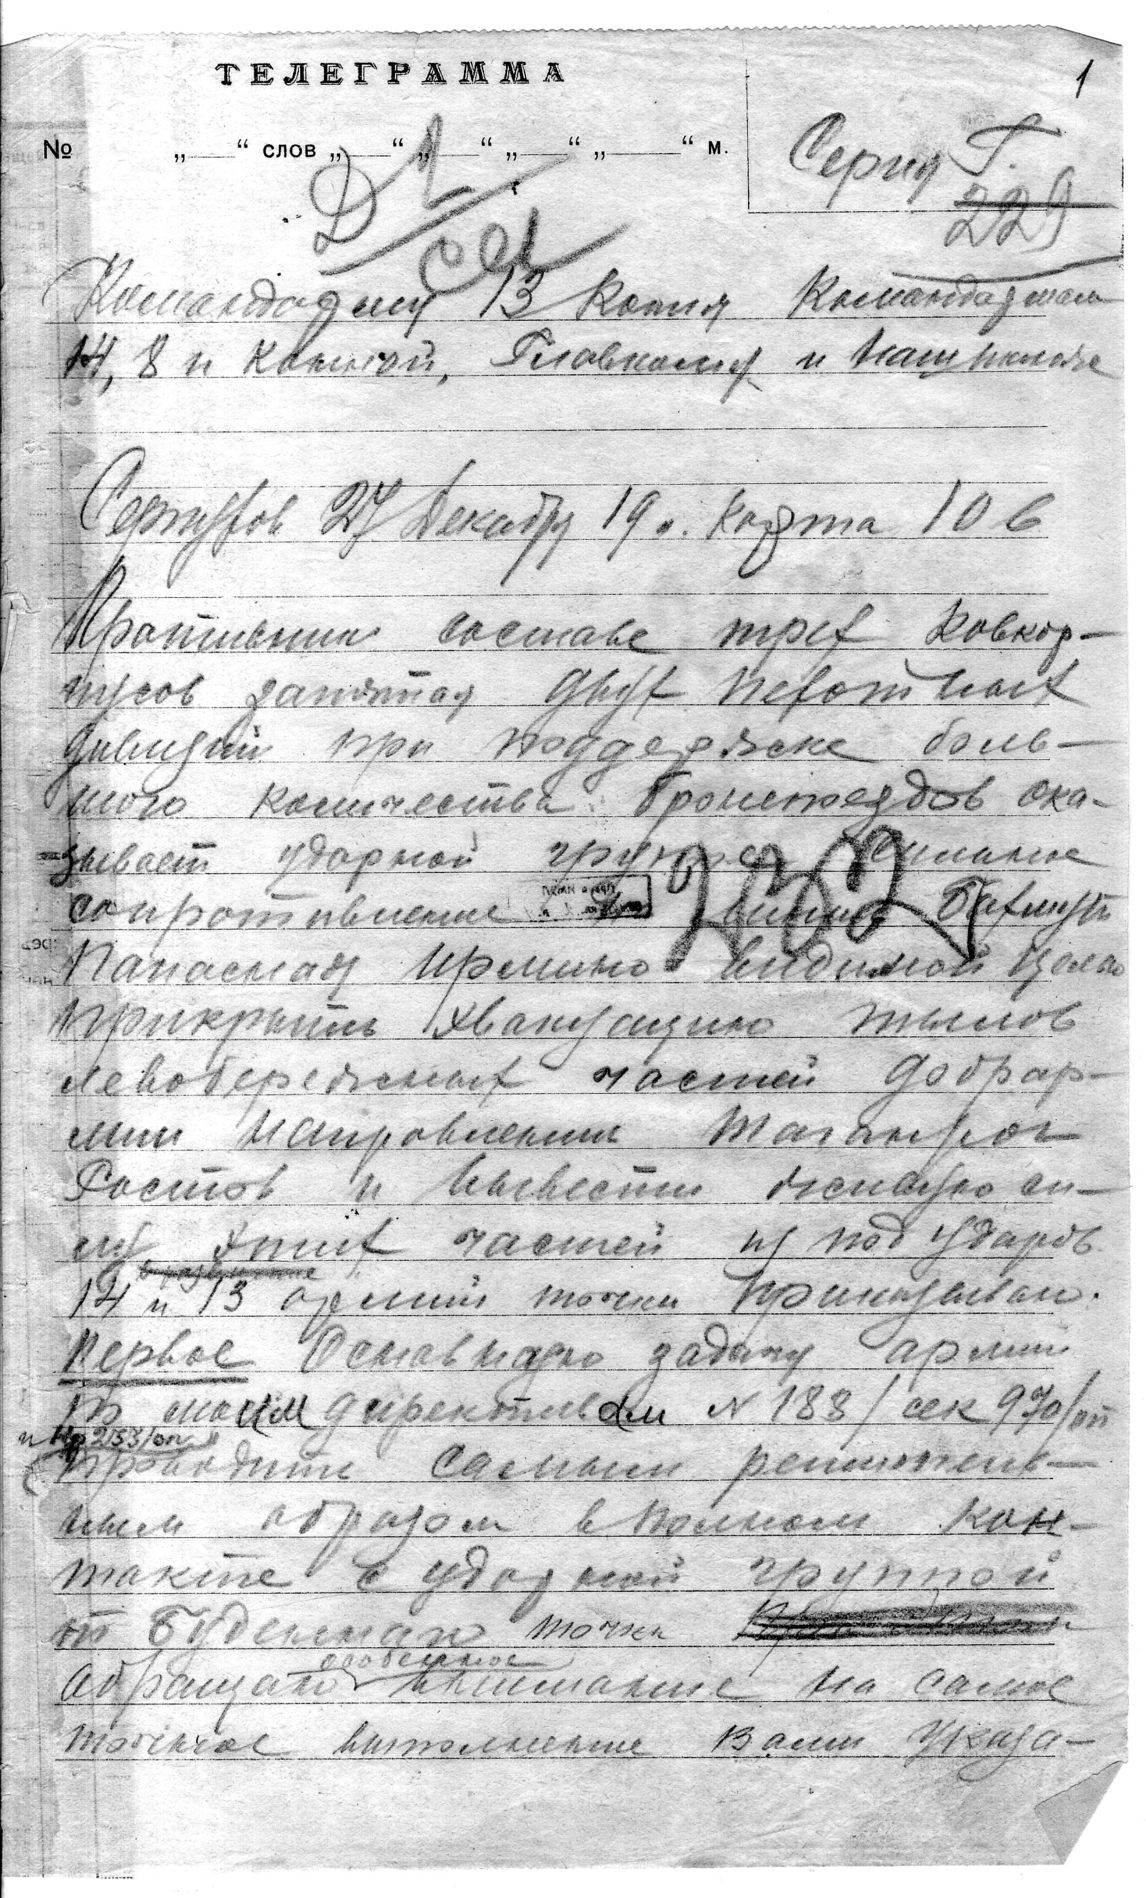 1
ТЕЛЕГРАММА
№ „ “ слов „ “ „ “ „ “ „ “ м.
Серия Г.
229
Д 2
сел
Командарму 13 Копия Командармам
14, 8 и Конной, Главкому и
Серпухов 27 Декабря 19 г. Карта 10 в
Противник составе трех Ковкор-
пусов двух пехотных
дивизий при поддержке боль-
шого количества бронепоездов ока-
зывает ударной группе сильное
сопротивление линии Бахмут
Папасная Ирмино видимой целью
прикрыть эвакуацию тылов
левобережных частей добрар-
мии направлении Таганрог
Ростов и вывести живую си-
лу этих частей из под ударов
14 и 13 армий точка приказываю.
Первое Основную задачу армии
по моим директивам № 188/сек 970/оп
и Нр 2153/оп
проводить самым решитель-
ным образом в полном кон-
такте с ударной группой
т Буденного точка
особенное
Обращаю внимание на самое
точное выполнение Вами указа-
232